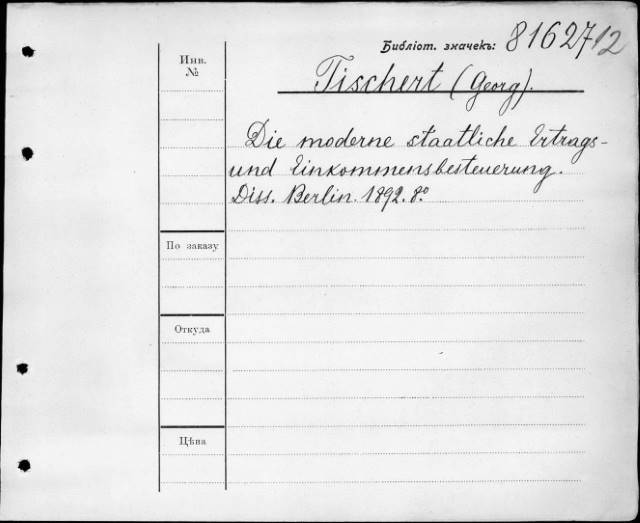 Библіот. значекъ: 8162712
Инв.
№
Tischert (Georg).
Die moderne staatliche Ertrags-
und Einkommensbesteuerung.
Diss. Berlin. 1892. 8º
По заказу
Откуда
Цѣна